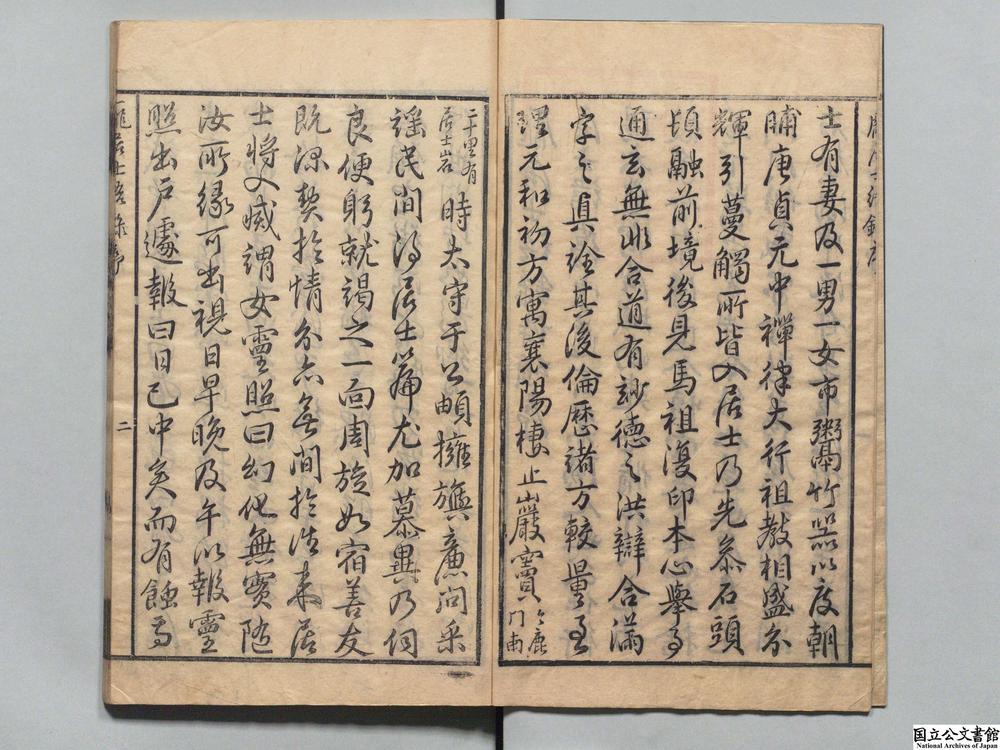 士有妻及一男一女市鬻竹器以度朝
晡唐貞元中禪律大行祖教相盛分
輝引蔓觸所皆入居士乃先參石頭
頓融前境後見馬祖復印本心舉事
通玄無非合道有妙德之洪辯合滿
字之真詮其後倫歷諸方較量至
理元和初方寓襄陽棲止巖竇今鹿
門南
二十里有
居士岩
時太守于公頔擁旟廉問采
謠民間得居士篇尤加慕異乃伺
良便躬就謁之一面周旋如宿善友
既深契於情分亦無間於往來居
士將入滅謂女靈照曰幻化無實隨
汝所緣可出視日早晚及午以報靈
照出戶遽報曰日已中矣而有蝕焉
龐居士語錄序
二
国立公文書館
National Archives of Japan